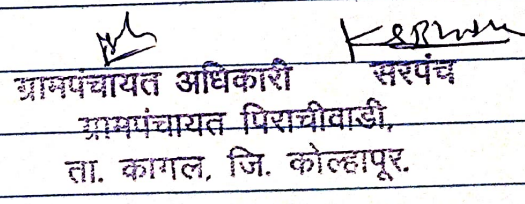 ग्रामपंचायत अधिकारी सरपंच
ग्रामपंचायत पिराचीवाडी,
ता. कागल, जि. कोल्हापूर.